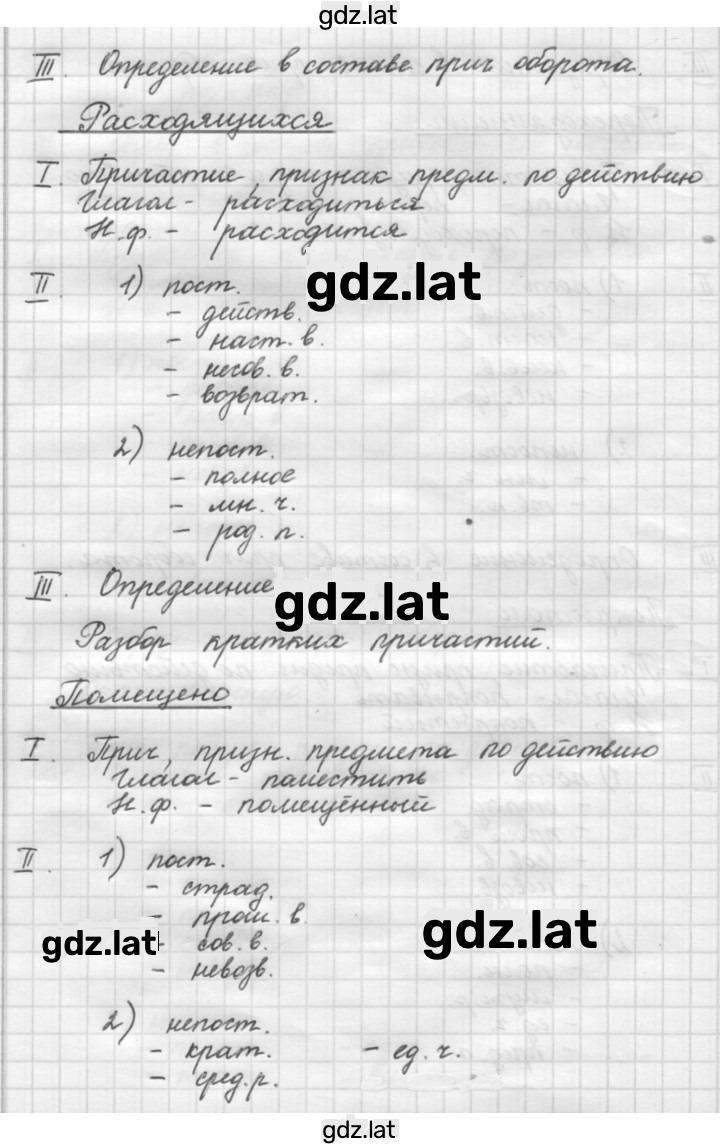 gdz.lat
III. Определение в составе прич оборота.
Расходящихся
I. Причастие, признак предм. по действию
Глагол - расходиться
Н.ф. - расходится
II. 1) пост.
gdz.lat
- действ.
- наст. в.
- несов. в.
- возврат.
2) непост.
- полное
- мн. ч.
- род. п.
III. Определение
gdz.lat
Разбор кратких причастий.
Помещено
I. Прич, призн. предмета по действию
Глагол - поместить
Н.ф. - помещённый
II. 1) пост.
- страд.
- прош. в.
gdz.lat
gdz.lat
- сов. в.
- невозв.
2) непост.
- крат. - ед. ч.
- сред. р.
gdz.lat